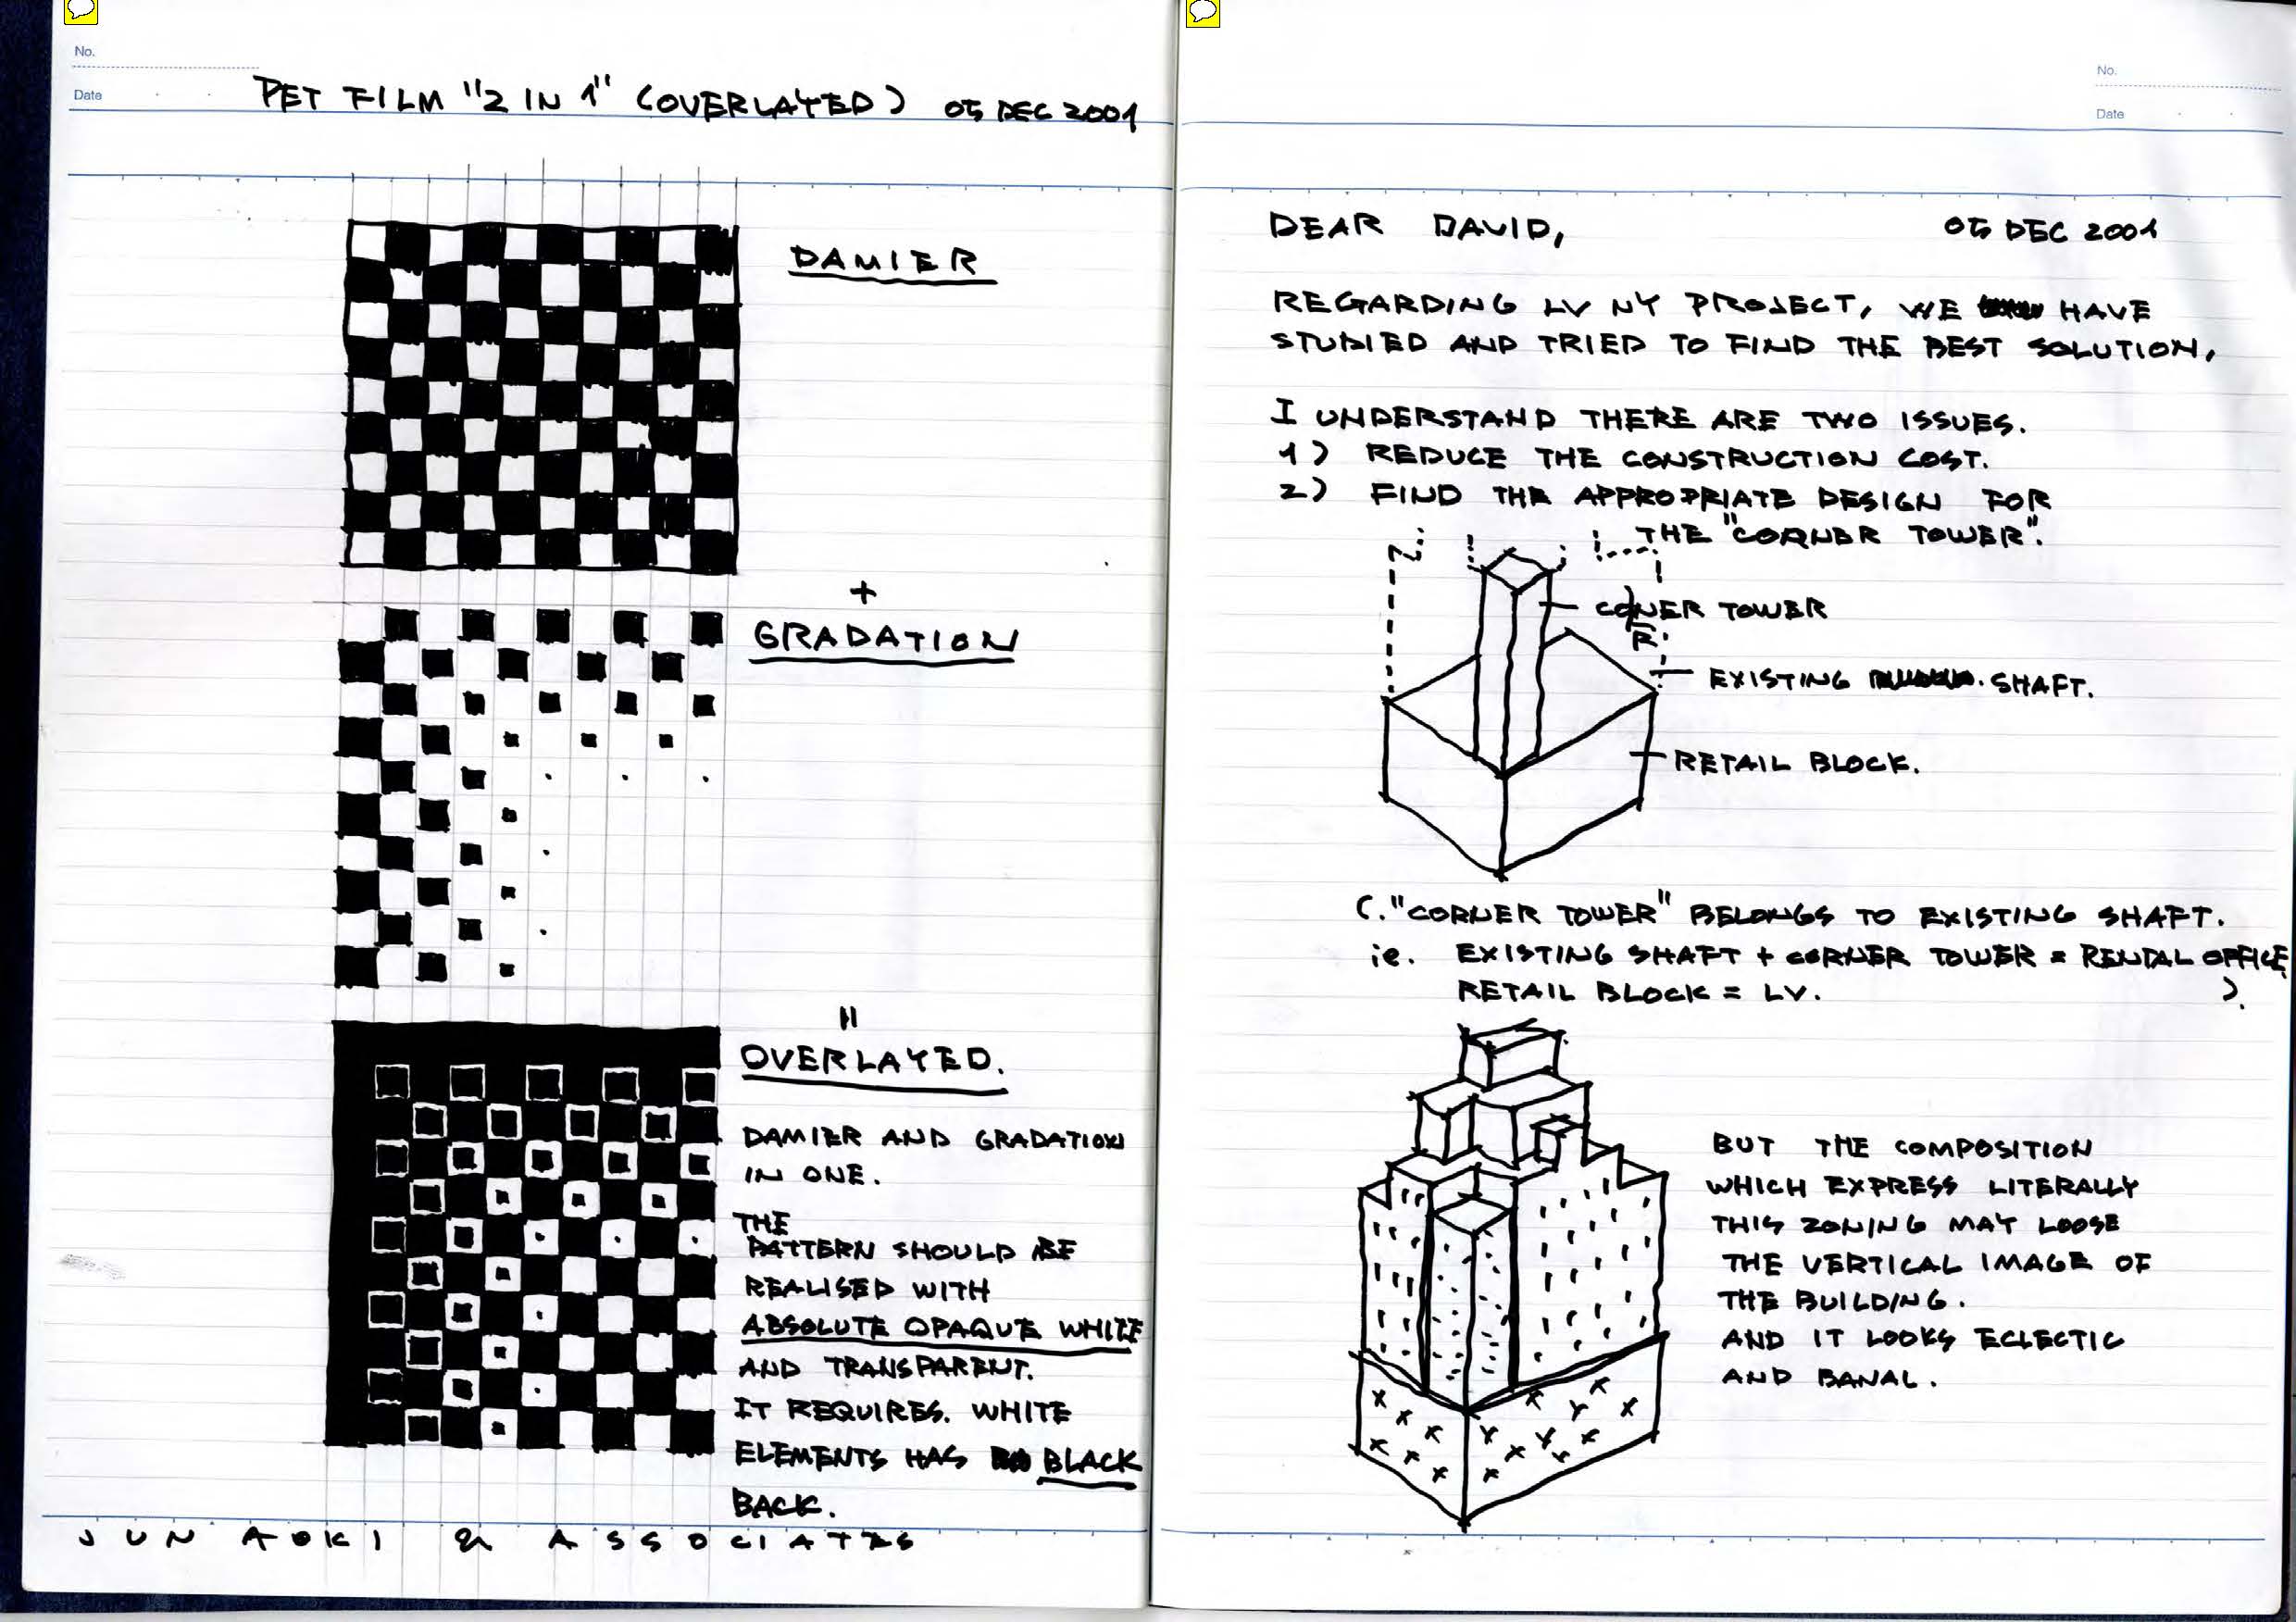 No.
Date
PET FILM "2 IN 1" (OVERLAYED) 05 DEC 2001
DAMIER
+
GRADATION
=
OVERLAYED.
DAMIER AND GRADATION
IN ONE.
THE
PATTERN SHOULD BE
REALISED WITH
ABSOLUTE OPAQUE WHITE
AND TRANSPARENT.
IT REQUIRES. WHITE
ELEMENTS HAS BLACK
BACK.
JUN AOKI & ASSOCIATES
No.
Date
DEAR DAVID, 05 DEC 2001
REGARDING LV NY PROJECT, WE HAVE
STUDIED AND TRIED TO FIND THE BEST SOLUTION,
I UNDERSTAND THERE ARE TWO ISSUES.
1) REDUCE THE CONSTRUCTION COST.
2) FIND THE APPROPRIATE DESIGN FOR
THE "CORNER TOWER".
CORNER TOWER
EXISTING SHAFT.
RETAIL BLOCK.
(. "CORNER TOWER" BELONGS TO EXISTING SHAFT.
ie. EXISTING SHAFT + CORNER TOWER = RENTAL OFFICE,
RETAIL BLOCK = LV. ).
BUT THE COMPOSITION
WHICH EXPRESS LITERALLY
THIS ZONING MAY LOOSE
THE VERTICAL IMAGE OF
THE BUILDING.
AND IT LOOKS ECLECTIC
AND BANAL.